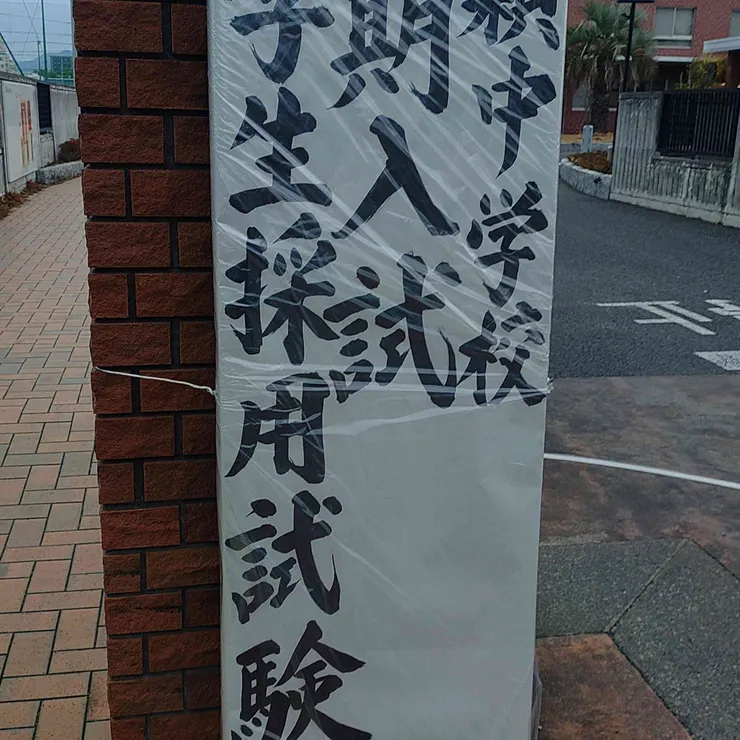 中学校
期入試
学生採用試験